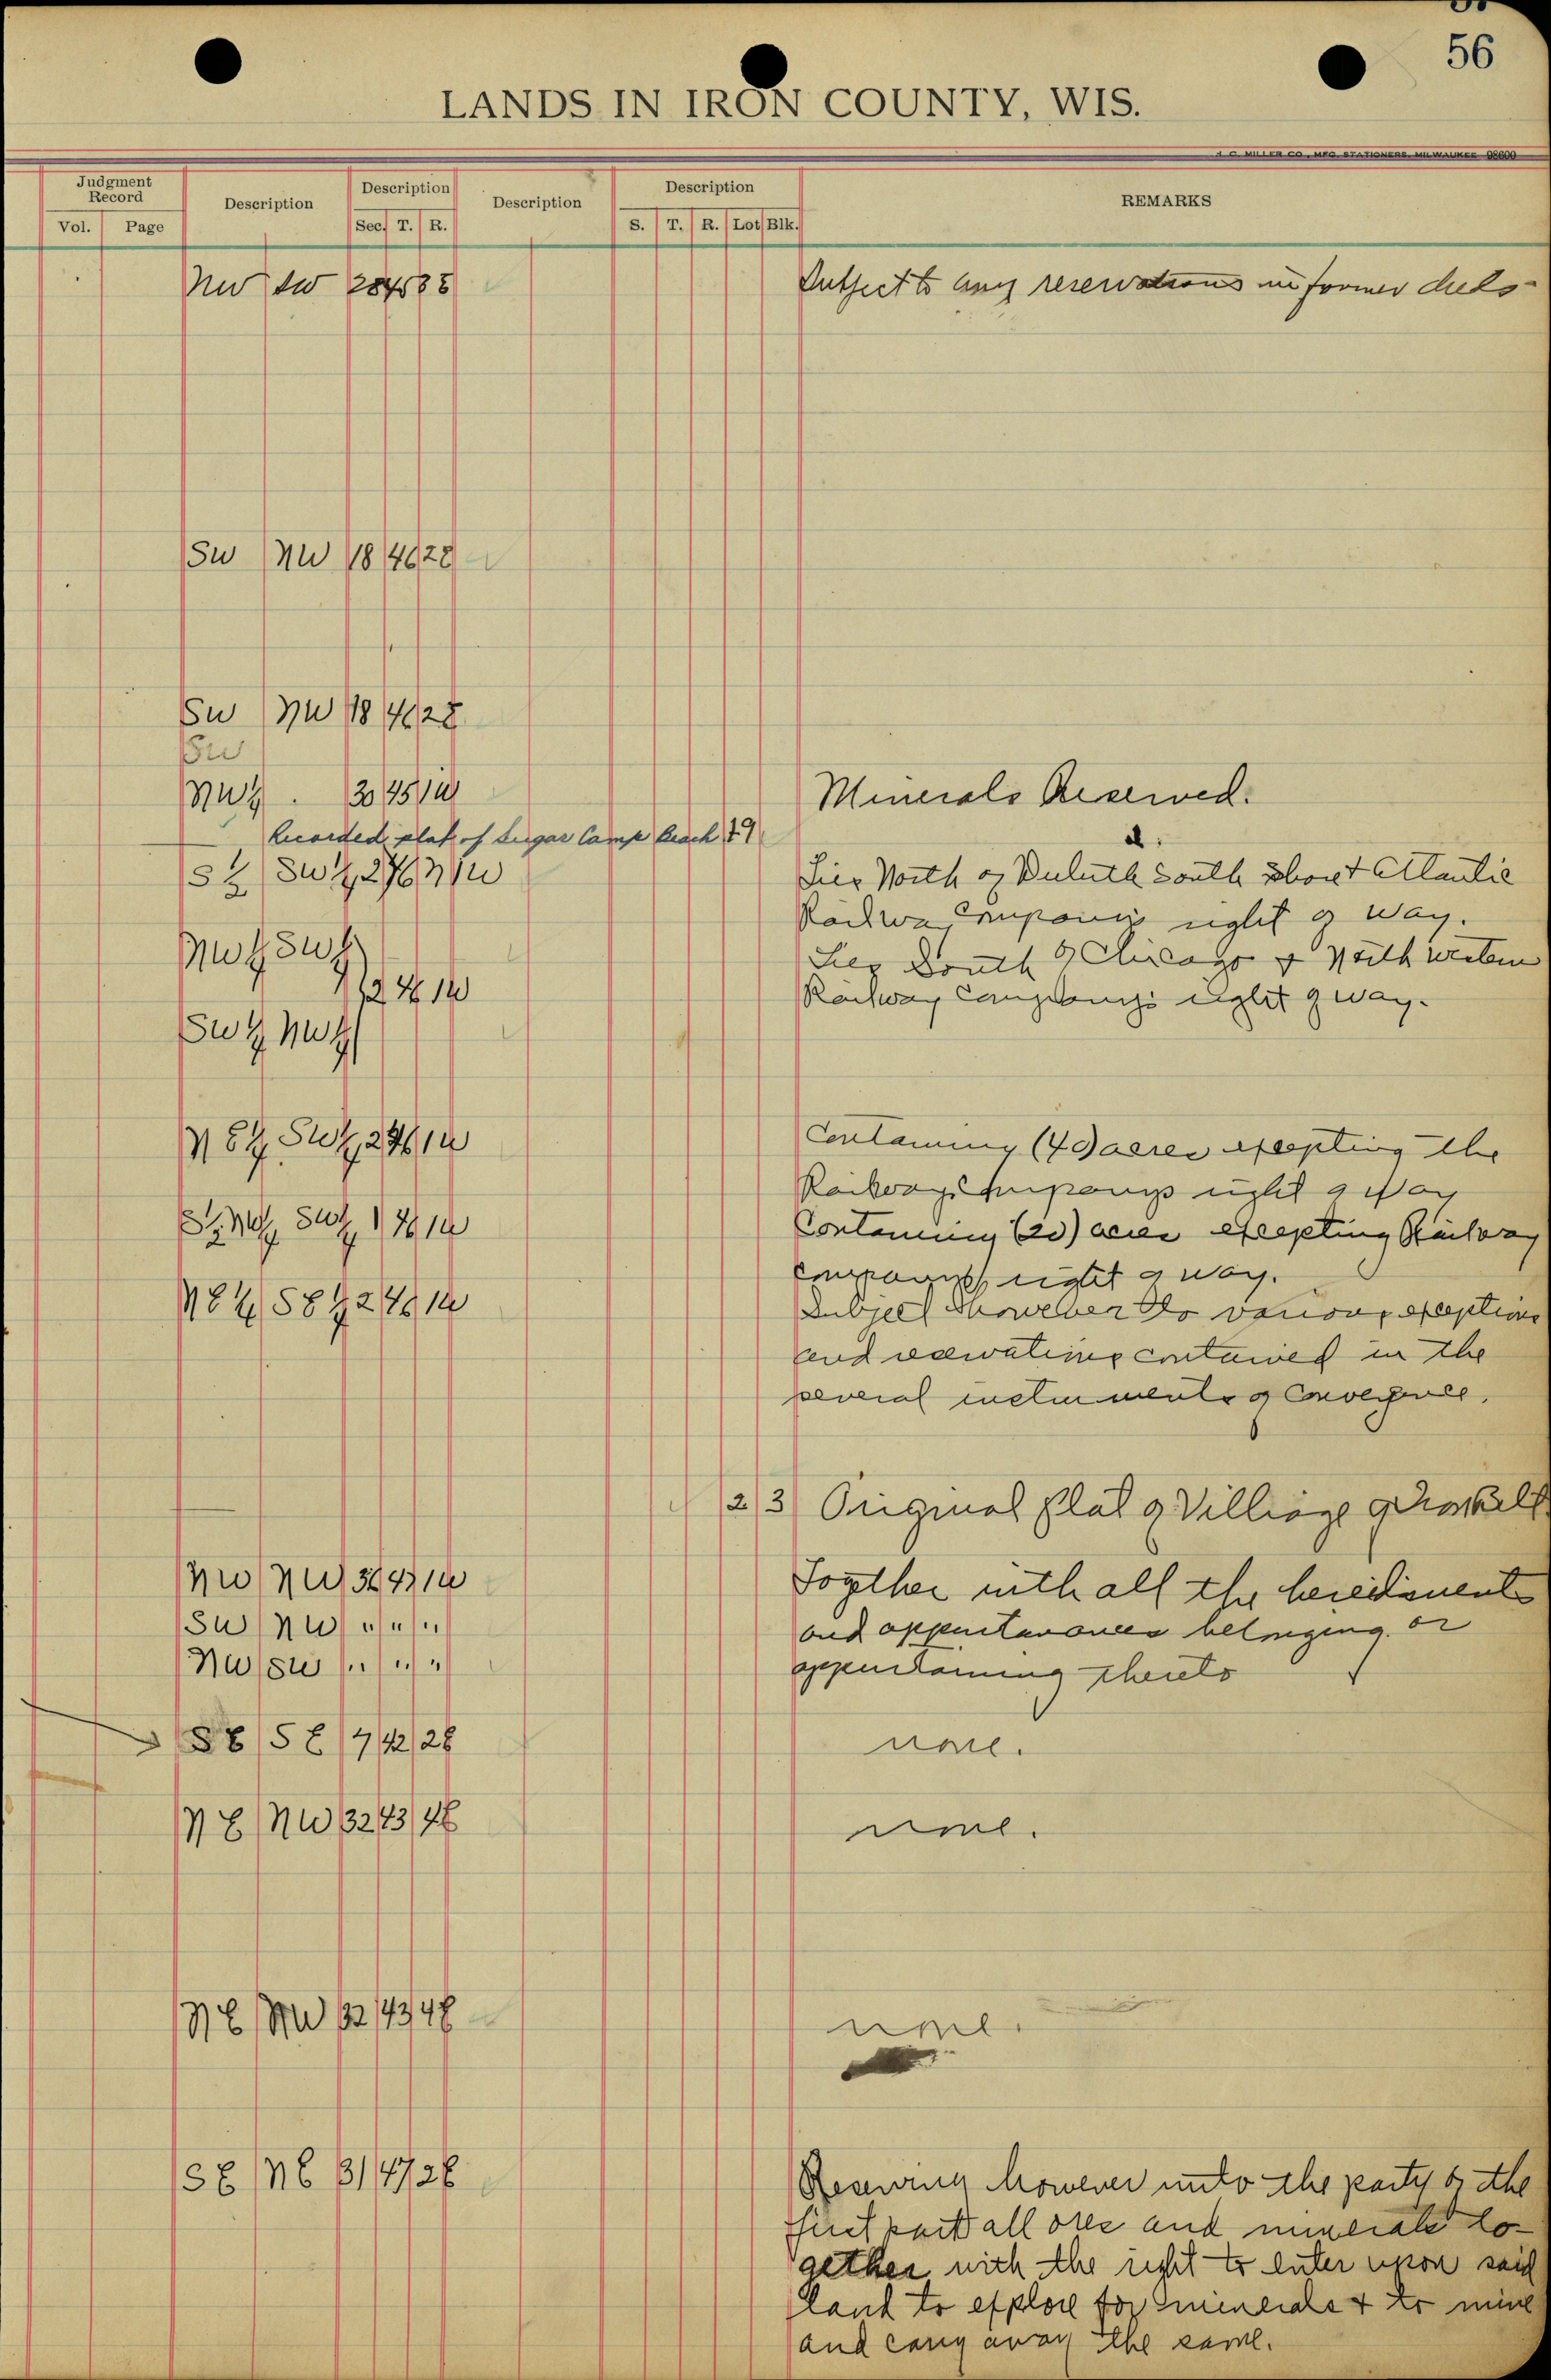 56
LANDS IN IRON COUNTY, WIS.
MILLER CO., MFG. STATIONERS, MILWAUKEE 98600
Judgment Record
Vol. Page
Description
Description
Sec. T. R.
Description
Description
S. T. R. Lot Blk.
REMARKS
NW SW 28 45 3E Subject to any reservations in former deeds
SW NW 18 46 2E
SW NW 18 46 2E
SW
NW¼ 30 45 1W Minerals Reserved.
Recorded plat of Sugar Camp Beach 19
S½ SW¼ 27 1W Lies North of Duluth South Shore & Atlantic
Railway Company's right of way.
NW¼ SW¼ Lies South of Chicago & North western
12 46 1W Railway Company's right of way.
SW¼ NW¼
NE¼ SW¼ 2 46 1W Containing (40) acres excepting the
Railway Company's right of way
S½ NW¼ SW¼ 1 46 1W Containing (20) acres excepting Railway
Company's right of way.
NE¼ SE¼ 2 46 1W Subject however to various exceptions
and reservations contained in the
several instruments of Conveyance.
2 3 Original Plat of Village of
NW NW 36 43 1W Together with all the herediments
SW NW " " " and appurtenances belonging or
NW SW " " " appertaining thereto
SE SE 7 42 2E none.
NE NW 32 43 4E none.
NE NW 32 43 4E none.
SE NE 31 47 2E Reserving however unto the party of the
first part all ores and minerals to-
gether with the right to enter upon said
land to explore for minerals & to mine
and carry away the same.